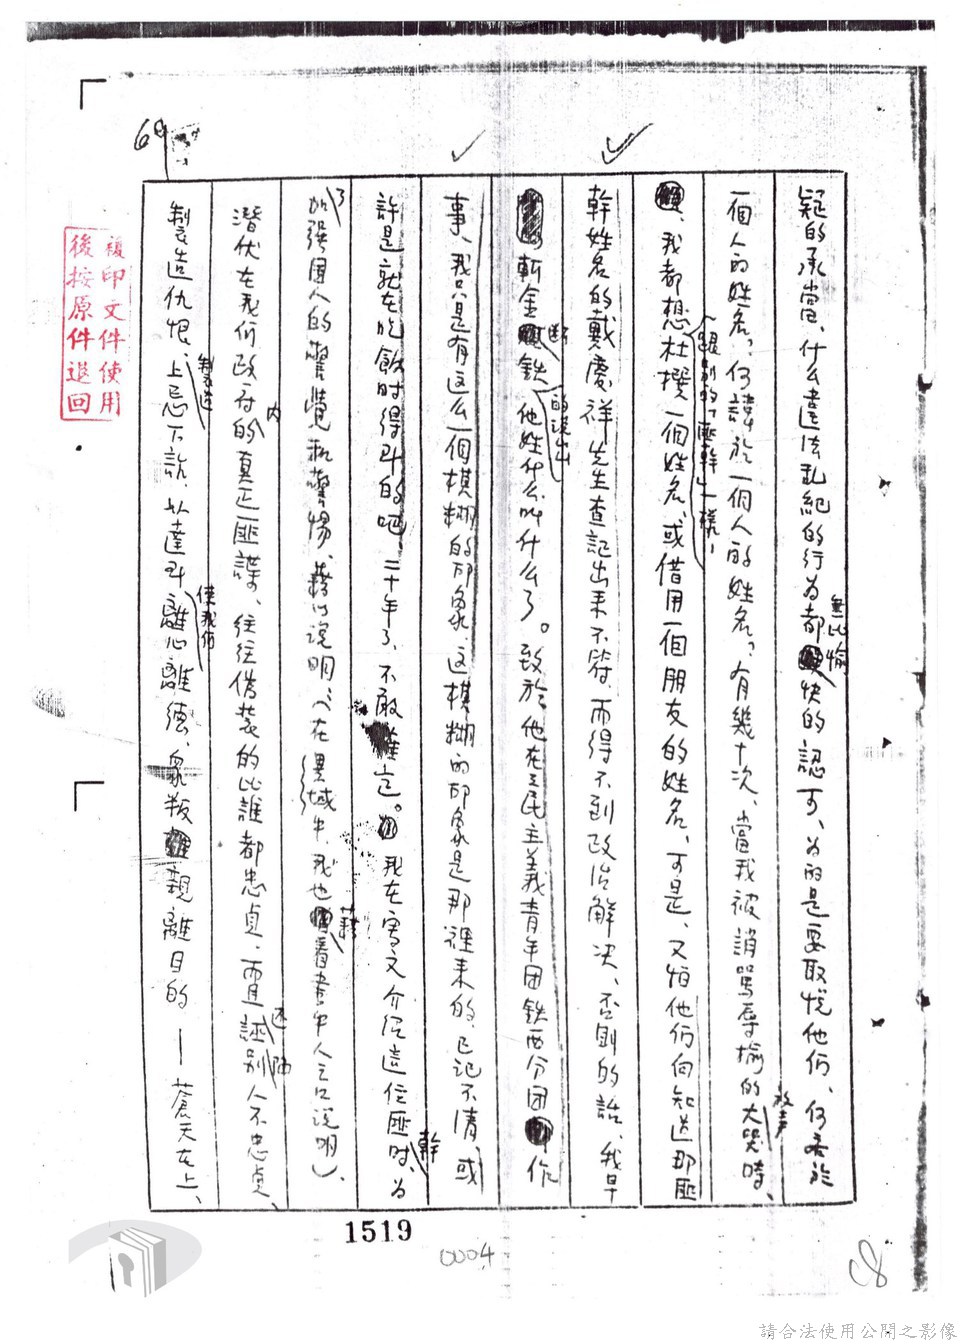 69
疑的承當、什么違法乱紀的行为都無比愉快的認可、为的是要取悦他们、何吝於
一個人的姓名？何諱於一個人的姓名？有幾十次、當我被誚罵辱揄的放声大哭時、
我都想杜撰一個姓名、或借用一個朋友的姓名、可是、又怕他们向知道那匪
跟别的「匪幹」一樣，
幹姓名的戴慶祥先生查記出来不符、而得不到政治解决、否則的話、我早
斬金断鉄的说出他姓什么叫什么了。致於他在三民主義青年团鉄西分团作
事、我只是有这么一個模糊的印象、这模糊的印象是那裡来的、已记不清、或
許是就在吃飯时得到的吧、二十年了、不敢確定。我在寫文介紹這位匪幹时、为
了加强国人的警覺和警惕、藉以说明（在異域中、我也藉着書中人之口说明）、
潜伏在我们政府内的真正匪諜、往往偽装的比誰都忠貞、而且還誣陷别人不忠貞、
製造仇恨、製造上忌下訧、以達到使我们離心離德、衆叛親離目的——蒼天在上、
複印文件使用
後按原件退回
1519
0004
68
請合法使用公開之影像